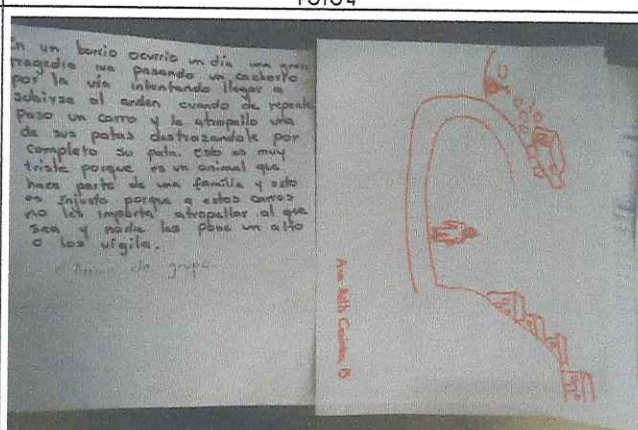 FOTO 4
En un barrio ocurrio un día una gran
tragedia iva pasando un cachorro
por la vía intentando llegar a
subirse al anden cuando de repente
paso un carro y le atropello una
de sus patas destrazandole por
completo su pata. esto es muy
triste porque es un animal que
hace parte de una familia y esto
es injusto porque a estos carros
no les importa atropellar al que
sea y nadie les pone un alto
o los vigila.
de grupo
Ana Ruth